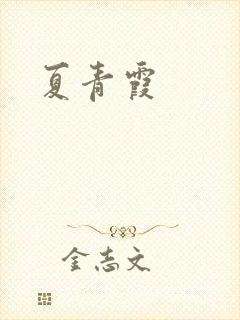 夏青霞
金志文